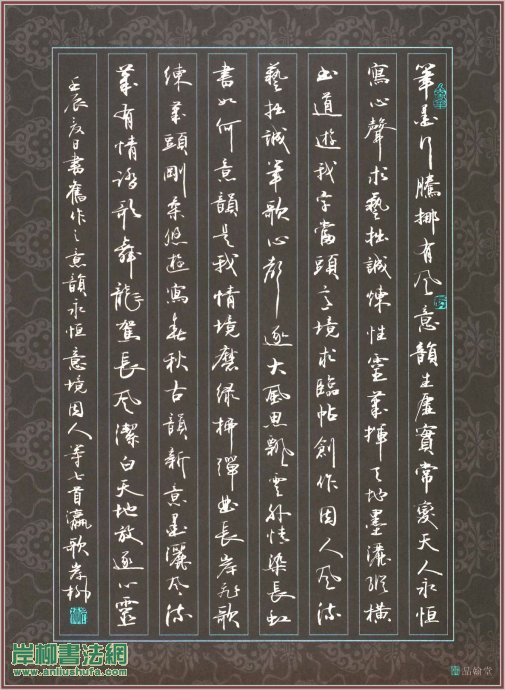 筆墨行騰挪有風意韻生虛實常變天人永恒
寫心聲求藝拙誠煉性靈筆揮天地墨灑縱橫
書道遊我字當頭意境求臨帖創作因人風流
藝拙誠筆歌心聲逐大風思飄雲外情染長虹
書如何意韻是我情境磨綠柳彈曲長岸飛歌
練筆頭剛柔悠遊寫春秋古韻新意墨灑風流
筆有情踏歌舞龍駕長風潔白天地放逐心靈
壬辰夏日書舊作之意韻永恒意境因人等七首瀛歌岸柳
岸柳書法網
www.anliushufa.com
品翰堂